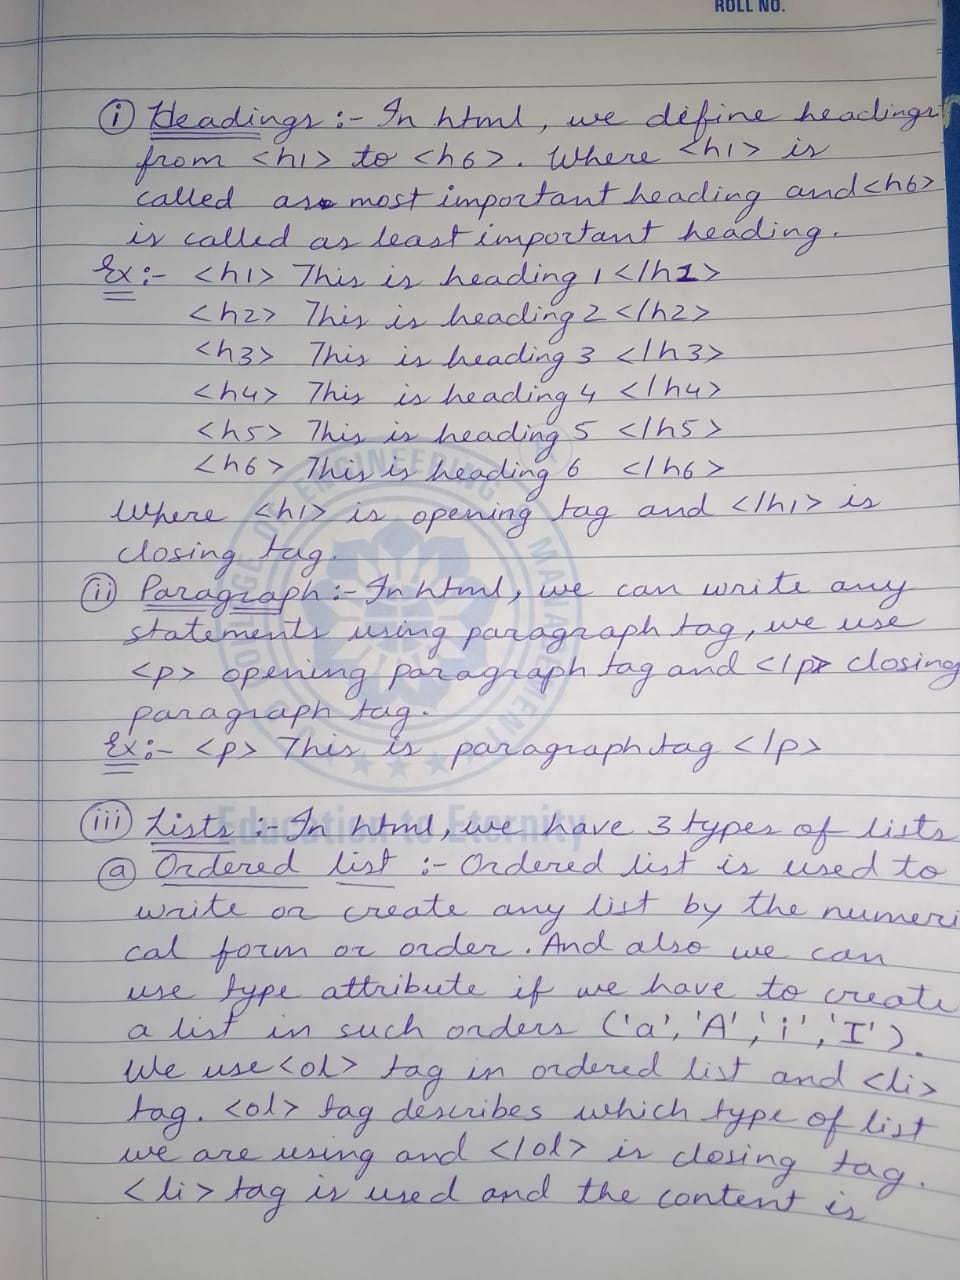 ROLL NO.
(i) Headings :- In html, we define headings
from <h1> to <h6>. Where <h1> is
called as most important heading and <h6>
is called as least important heading.
Ex :- <h1> This is heading 1 </h1>
<h2> This is heading 2 </h2>
<h3> This is heading 3 </h3>
<h4> This is heading 4 </h4>
<h5> This is heading 5 </h5>
<h6> This is heading 6 </h6>
Where <h1> is opening tag and </h1> is
closing tag.
(ii) Paragraph :- In html, we can write any
statements using paragraph tag, we use
<p> opening paragraph tag and </p> closing
paragraph tag.
Ex :- <p> This is paragraph tag </p>
Education to Eternity
(iii) Lists :- In html, we have 3 types of lists
(a) Ordered list :- Ordered list is used to
write or create any list by the numeri
cal form or order. And also we can
use type attribute if we have to create
a list in such orders ('a', 'A', 'i', 'I').
We use <ol> tag in ordered list and <li>
tag. <ol> tag describes which type of list
we are using and </ol> is closing tag.
<li> tag is used and the content is